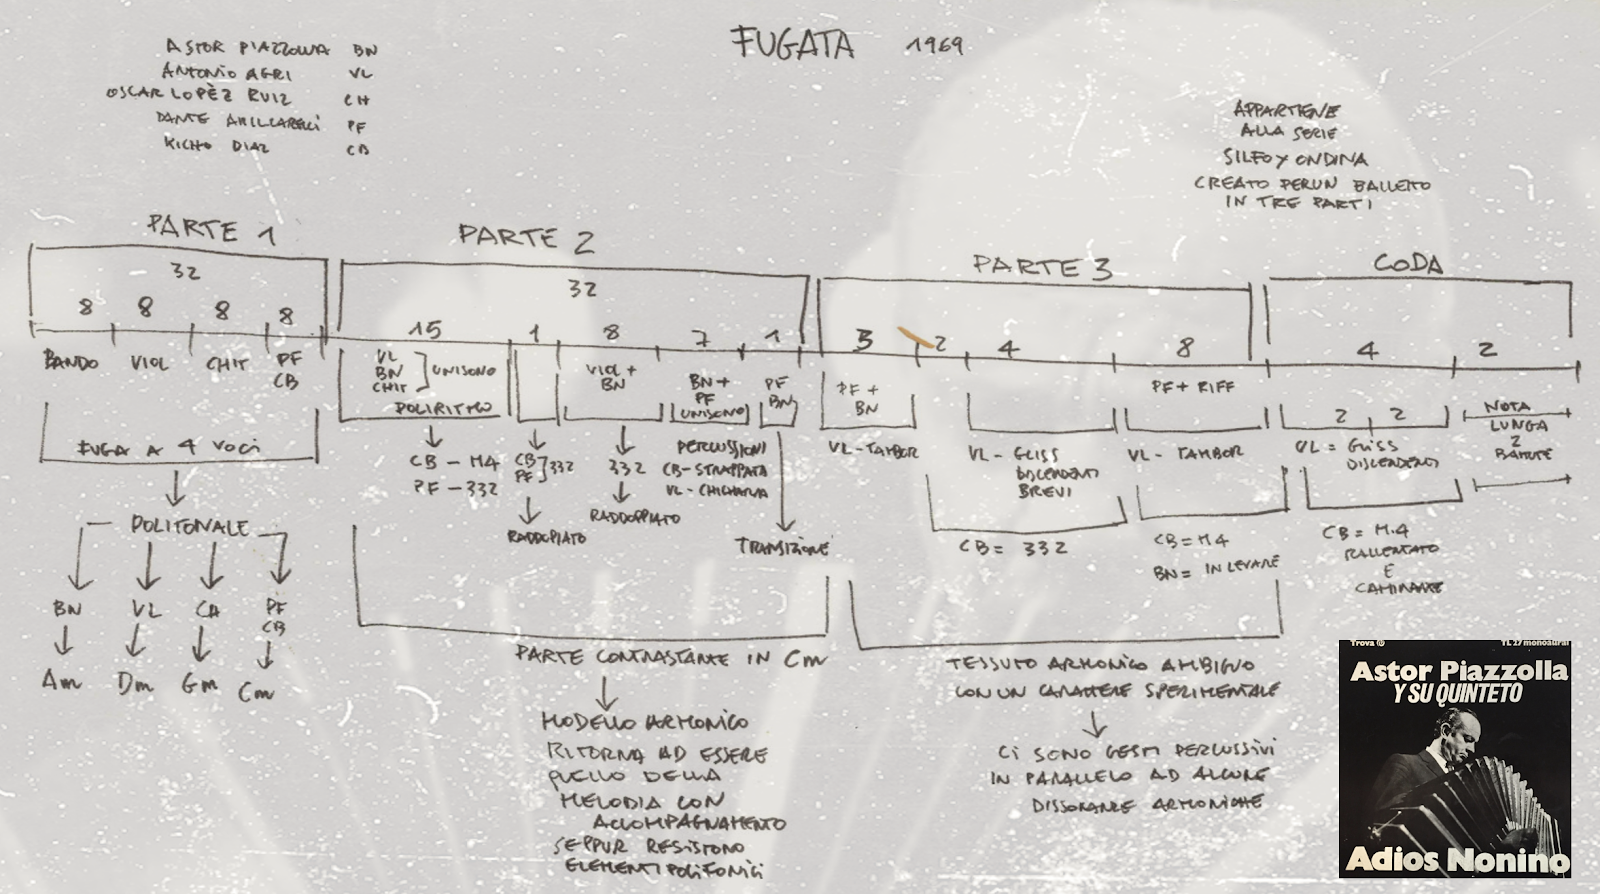 FUGATA 1969
ASTOR PIAZZOLLA BN
ANTONIO AGRI VL
OSCAR LOPÈZ RUIZ CH
DANTE AMICARELLI PF
KICHO DIAZ CB
APPARTIENE
ALLA SERIE
SILFO Y ONDINA
CREATO PER UN BALLETTO
IN TRE PARTI
PARTE 1
32
8 8 8 8
BANDO VIOL CHIT PF
CB
FUGA A 4 VOCI
POLITONALE
BN VL CH PF
CB
Am Dm Gm Cm
PARTE 2
32
15 1 8 7 1
VL
BN
CHIT
UNISONO
POLIRITMO
CB - M4
PF - 332
CB
PF
332
RADDOPIATO
VIOL +
BN
332
RADDOPPIATO
BN +
PF
UNISONO
PERCUSSIONI
CB - STRAPPATA
VL - CHICHARRA
PF
BN
TRANSIZIONE
PARTE CONTRASTANTE IN Cm
MODELLO ARMONICO
RITORNA AD ESSERE
QUELLO DELLA
MELODIA CON
ACCOMPAGNAMENTO
SEPPUR RESISTONO
ELEMENTI POLIFONICI
PARTE 3
3 2 4 8
PF +
BN
VL - TAMBOR
VL - GLISS
DISCENDENTI
BREVI
CB = 332
PF + RIFF
VL - TAMBOR
CB = M4
BN = IN LEVARE
TESSUTO ARMONICO AMBIGUO
CON UN CARATTERE SPERIMENTALE
CI SONO GESTI PERCUSSIVI
IN PARALLELO AD ALCUNE
DISSONANZE ARMONICHE
CODA
4 2
2 2
VL = GLISS
DISCENDENTI
CB = M.4
RALLENTATO
E
CAMINANTE
NOTA
LUNGA
2
BATTUTE
Trova TL 27 monoaural
Astor Piazzolla
Y SU QUINTETO
Adios Nonino